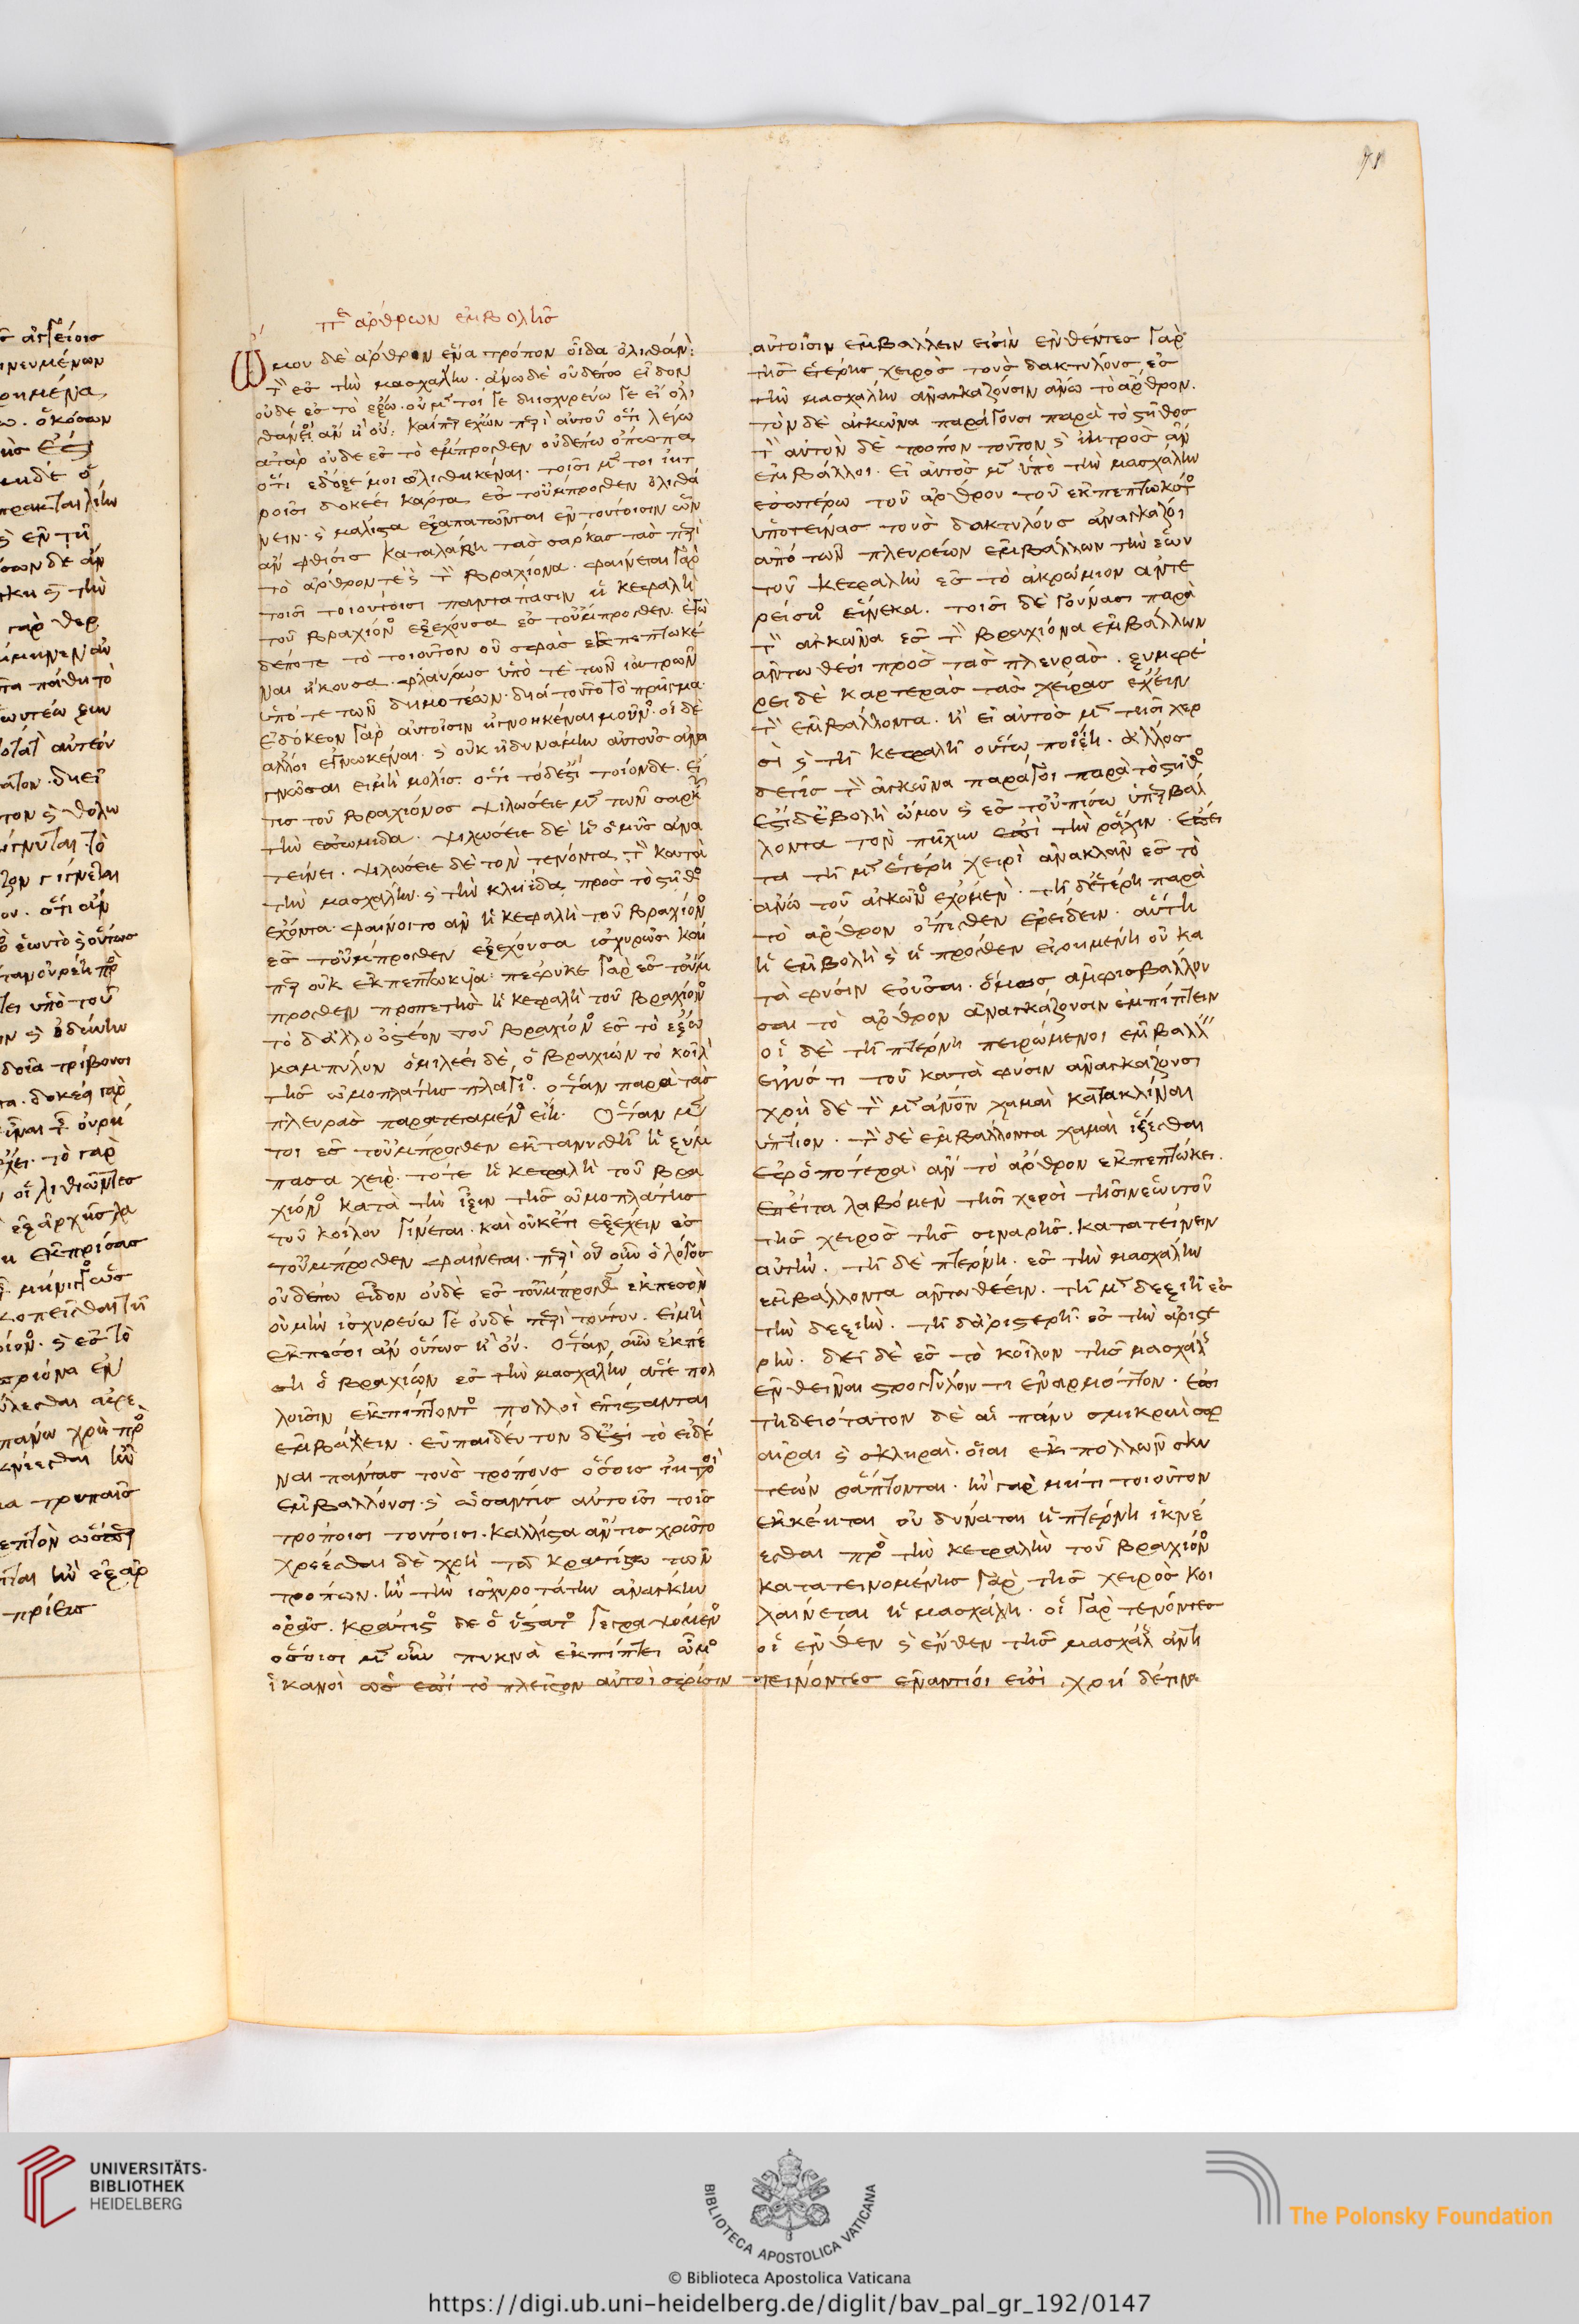 περὶ ἄρθρων ἐμβολῆς
Ὤμου δὲ ἄρθρον ἕνα τρόπον οἶδα ὀλισθάνον
τὸν ἐς τὴν μασχάλην. ἄνω δὲ οὐδέπω εἶδον
οὐδὲ ἐς τὸ ἔξω. οὐ μέντοι γε διισχυρείω γε εἰ ὀλι
θάνει ἂν ἢ οὔ. καίπερ ἔχων περὶ αὐτοῦ ὅτι λέγω
ἀτὰρ οὐδὲ ἐς τὸ ἔμπροσθεν οὐδέπω ὄπωπα
ὅτι ἔδοξέ μοι ὠλισθηκέναι. τοῖσι μέντοι ἰητ
ροῖσι δοκέει κάρτα ἐς τοὔμπροσθεν ὀλισθά
νειν. καὶ μάλιστα ἐξαπατῶνται ἐν τουτέοισιν ὧν
ἂν φθίσις καταλάβη τὰς σάρκας τὰς περὶ
τὸ ἄρθρον τε καὶ τὸν βραχίονα. φαίνεται γὰρ
τοῖσι τοιουτέοισι παντάπασιν ἡ κεφαλὴ
τοῦ βραχίονος ἐξέχουσα ἐς τοὔμπροσθεν. ἐγὼ
δέποτε τὸ τοιοῦτον οὐ φὰς ἐκπεπτωκέ
ναι ἤκουσα φλαύρως ὑπό τε τῶν ἰατρῶν
ὑπό τε τῶν δημοτέων. διὰ τοῦτο τὸ πρῆγμα.
ἐδόκεον γὰρ αὐτοῖσιν ἠγνοηκέναι μοῦνος. οἱ δὲ
ἄλλοι ἐγνωκέναι. καὶ οὐκ ἠδυνάμην αὐτοὺς ἀνα
γνῶσαι εἰ μὴ μόλις. ὅτι τόδε ἐστὶ τοιόνδε. εἴ
τις τοῦ βραχίονος ψιλώσειε μὲν τῶν σαρκῶν
τὴν ἐπωμίδα. ψιλώσειε δὲ ἧ ὁ μῦς ἀνα
τείνει. ψιλώσειε δὲ τὸν τένοντα τὸν κατὰ
τὴν μασχάλην. καὶ τὴν κληῖδα πρὸς τὸ στῆθος
ἔχοντα. φαίνοιτο ἂν ἡ κεφαλὴ τοῦ βραχίονος
ἐς τοὔμπροσθεν ἐξέχουσα ἰσχυρῶς καί
περ οὐκ ἐκπεπτωκυῖα. πέφυκε γὰρ ἐς τοὔμ
προσθεν προπετὴς ἡ κεφαλὴ τοῦ βραχίονος
τὸ δ' ἄλλο ὀστέον τοῦ βραχίονος ἐς τὸ ἔξω
καμπύλον ὁμιλέει δὲ ὁ βραχίων τὸ κοῖλον
τῆς ὠμοπλάτης πλάγιος. ὅταν παρὰ τὰς
πλευρὰς παρατεταμένος εἴη. Ὅταν μέν
τοι ἐς τοὔμπροσθεν ἐκτανυσθῆ ἡ ξύμ
πασα χείρ. τότε ἡ κεφαλὴ τοῦ βρα
χίονος κατὰ τὴν ἴξιν τῆς ὠμοπλάτης
τοῦ κοίλου γίνεται. καὶ οὐκέτι ἐξέχειν ἐς
τοὔμπροσθεν φαίνεται. περὶ οὗ οὖν ὁ λόγος
οὐδέπω εἶδον οὐδὲ ἐς τοὔμπροσθεν ἐκπεσὸν
οὐ μὴν ἰσχυρείω γε οὐδὲ περὶ τούτου. εἰ μὴ
ἐκπέσοι ἂν οὕτως ἢ οὔ. Ὅταν οὖν ἐκπέ
ση ὁ βραχίων ἐς τὴν μασχάλην ἅτε πολ
λοῖσιν ἐκπίπτοντος πολλοὶ ἐπίστανται
ἐμβάλλειν. εὐπαίδευτον δέ ἐστι τὸ εἰδέ
ναι πάντας τοὺς τρόπους οἷσι οἱ ἰητροὶ
ἐμβάλλουσι. καὶ ὡς ἄν τις αὐτοῖσι τοῖς
τρόποισι τουτέοισι. κάλλιστα ἄν τις χρῷτο
χρέεσθαι δὲ χρὴ τῷ κρατίστω τῶν
τρόπων. ἢν τὴν ἰσχυροτάτην ἀνάγκην
ὁρᾷς. κράτιστος δὲ ὁ ὕστατος γεγραψόμενος
ὁκόσοισι μὲν οὖν πυκνὰ ἐκπίπτει ὦμος
ἱκανοὶ ὡς ἐπὶ τὸ πλεῖστον αὐτοὶ σφίσιν
αὐτοῖσιν ἐμβάλλειν εἰσὶν ἐνθέντες γὰρ
τῆς ἑτέρης χειρὸς τοὺς δακτύλους ἐς
τὴν μασχάλην ἀναγκάζουσιν ἄνω τὸ ἄρθρον.
τὸν δὲ ἀγκῶνα παράγουσι παρὰ τὸ στῆθος
τὸν αὐτὸν δὲ τρόπον τοῦτον καὶ ἰητρὸς ἂν
ἐμβάλλοι. εἰ αὐτὸς μὲν ὑπὸ τὴν μασχάλην
ἐσωτέρω τοῦ ἄρθρου τοῦ ἐκπεπτωκότος
ὑποτείνας τοὺς δακτύλους ἀναγκάζοι
ἀπὸ τῶν πλευρέων ἐμβάλλων τὴν ἑων
τοῦ κεφαλὴν ἐς τὸ ἀκρώμιον ἀντε
ρείσιος εἵνεκα. τοῖσι δὲ γούνασι παρὰ
τὸν ἀγκῶνα ἐς τὸν βραχίονα ἐμβάλλων
ἀντωθέοι πρὸς τὰς πλευράς. ξυμφέ
ρει δὲ καρτερὰς τὰς χεῖρας ἔχειν
τὸν ἐμβάλλοντα. ἢ εἰ αὐτὸς μὲν τῆσι χερ
σὶ καὶ τῆ κεφαλῆ οὕτω ποιέη. ἄλλος
δέ τις τὸν ἀγκῶνα παράγοι παρὰ τὸ στῆθος
ἔστι δὲ ἐμβολὴ ὤμου καὶ ἐς τοὐπίσω ὑπερβάλ
λοντα τὸν πῆχυν ἐπὶ τὴν ῥάχιν. ἔπει
τα τῆ μὲν ἑτέρη χειρὶ ἀνακλᾶν ἐς τὸ
ἄνω τοῦ ἀγκῶνος ἐχόμενον. τῆ δ' ἑτέρη παρὰ
τὸ ἄρθρον ὄπισθεν ἐρείδειν. αὕτη
ἡ ἐμβολὴ καὶ ἡ πρόσθεν εἰρημένη οὐ κα
τὰ φύσιν ἐοῦσαι. ὅμως ἀμφισβάλλου
σαι τὸ ἄρθρον ἀναγκάζουσιν ἐμπίπτειν
οἱ δὲ τῆ πτέρνη πειρώμενοι ἐμβάλλειν
ἐγγύς τι τοῦ κατὰ φύσιν ἀναγκάζουσι
χρὴ δὲ τὸν μὲν ἄνθρωπον χαμαὶ κατακλῖναι
ὕπτιον. τὸν δὲ ἐμβάλλοντα χαμαὶ ἵζεσθαι
ἐφ' ὁπότερα ἂν τὸ ἄρθρον ἐκπεπτώκει.
ἔπειτα λαβόμενον τῆσι χερσὶ τῆσιν ἑωυτοῦ
τῆς χειρὸς τῆς σιναρῆς. κατατείνειν
αὐτήν. τῆ δὲ πτέρνη. ἐς τὴν μασχάλην
ἐμβάλλοντα ἀντωθέειν. τῆ μὲν δεξιῆ ἐς
τὴν δεξιήν. τῆ δ' ἀριστερῆ ἐς τὴν ἀριστε
ρήν. δεῖ δὲ ἐς τὸ κοῖλον τῆς μασχάλης
ἐνθεῖναι στρογγύλον τι ἐναρμόττον. ἐπι
τηδειότατον δὲ αἱ πάνυ σμικραὶ σφ
αῖραι καὶ σκληραί. οἷαι ἐκ πολλῶν σκυ
τέων ῥάπτονται. ἢν γὰρ μή τι τοιοῦτον
ἐκκέηται οὐ δύναται ἡ πτέρνη ἱκνέ
εσθαι πρὸς τὴν κεφαλὴν τοῦ βραχίονος
κατατεινομένης γὰρ τῆς χειρὸς κοι
λαίνεται ἡ μασχάλη. οἱ γὰρ τένοντες
οἱ ἔνθεν καὶ ἔνθεν τῆς μασχάλης ἀντι
τείνοντες ἐναντίοι εἰσί. χρὴ δέ τινα
UNIVERSITÄTS-
BIBLIOTHEK
HEIDELBERG
BIBLIOTECA APOSTOLICA VATICANA
The Polonsky Foundation
© Biblioteca Apostolica Vaticana
https://digi.ub.uni-heidelberg.de/diglit/bav_pal_gr_192/0147